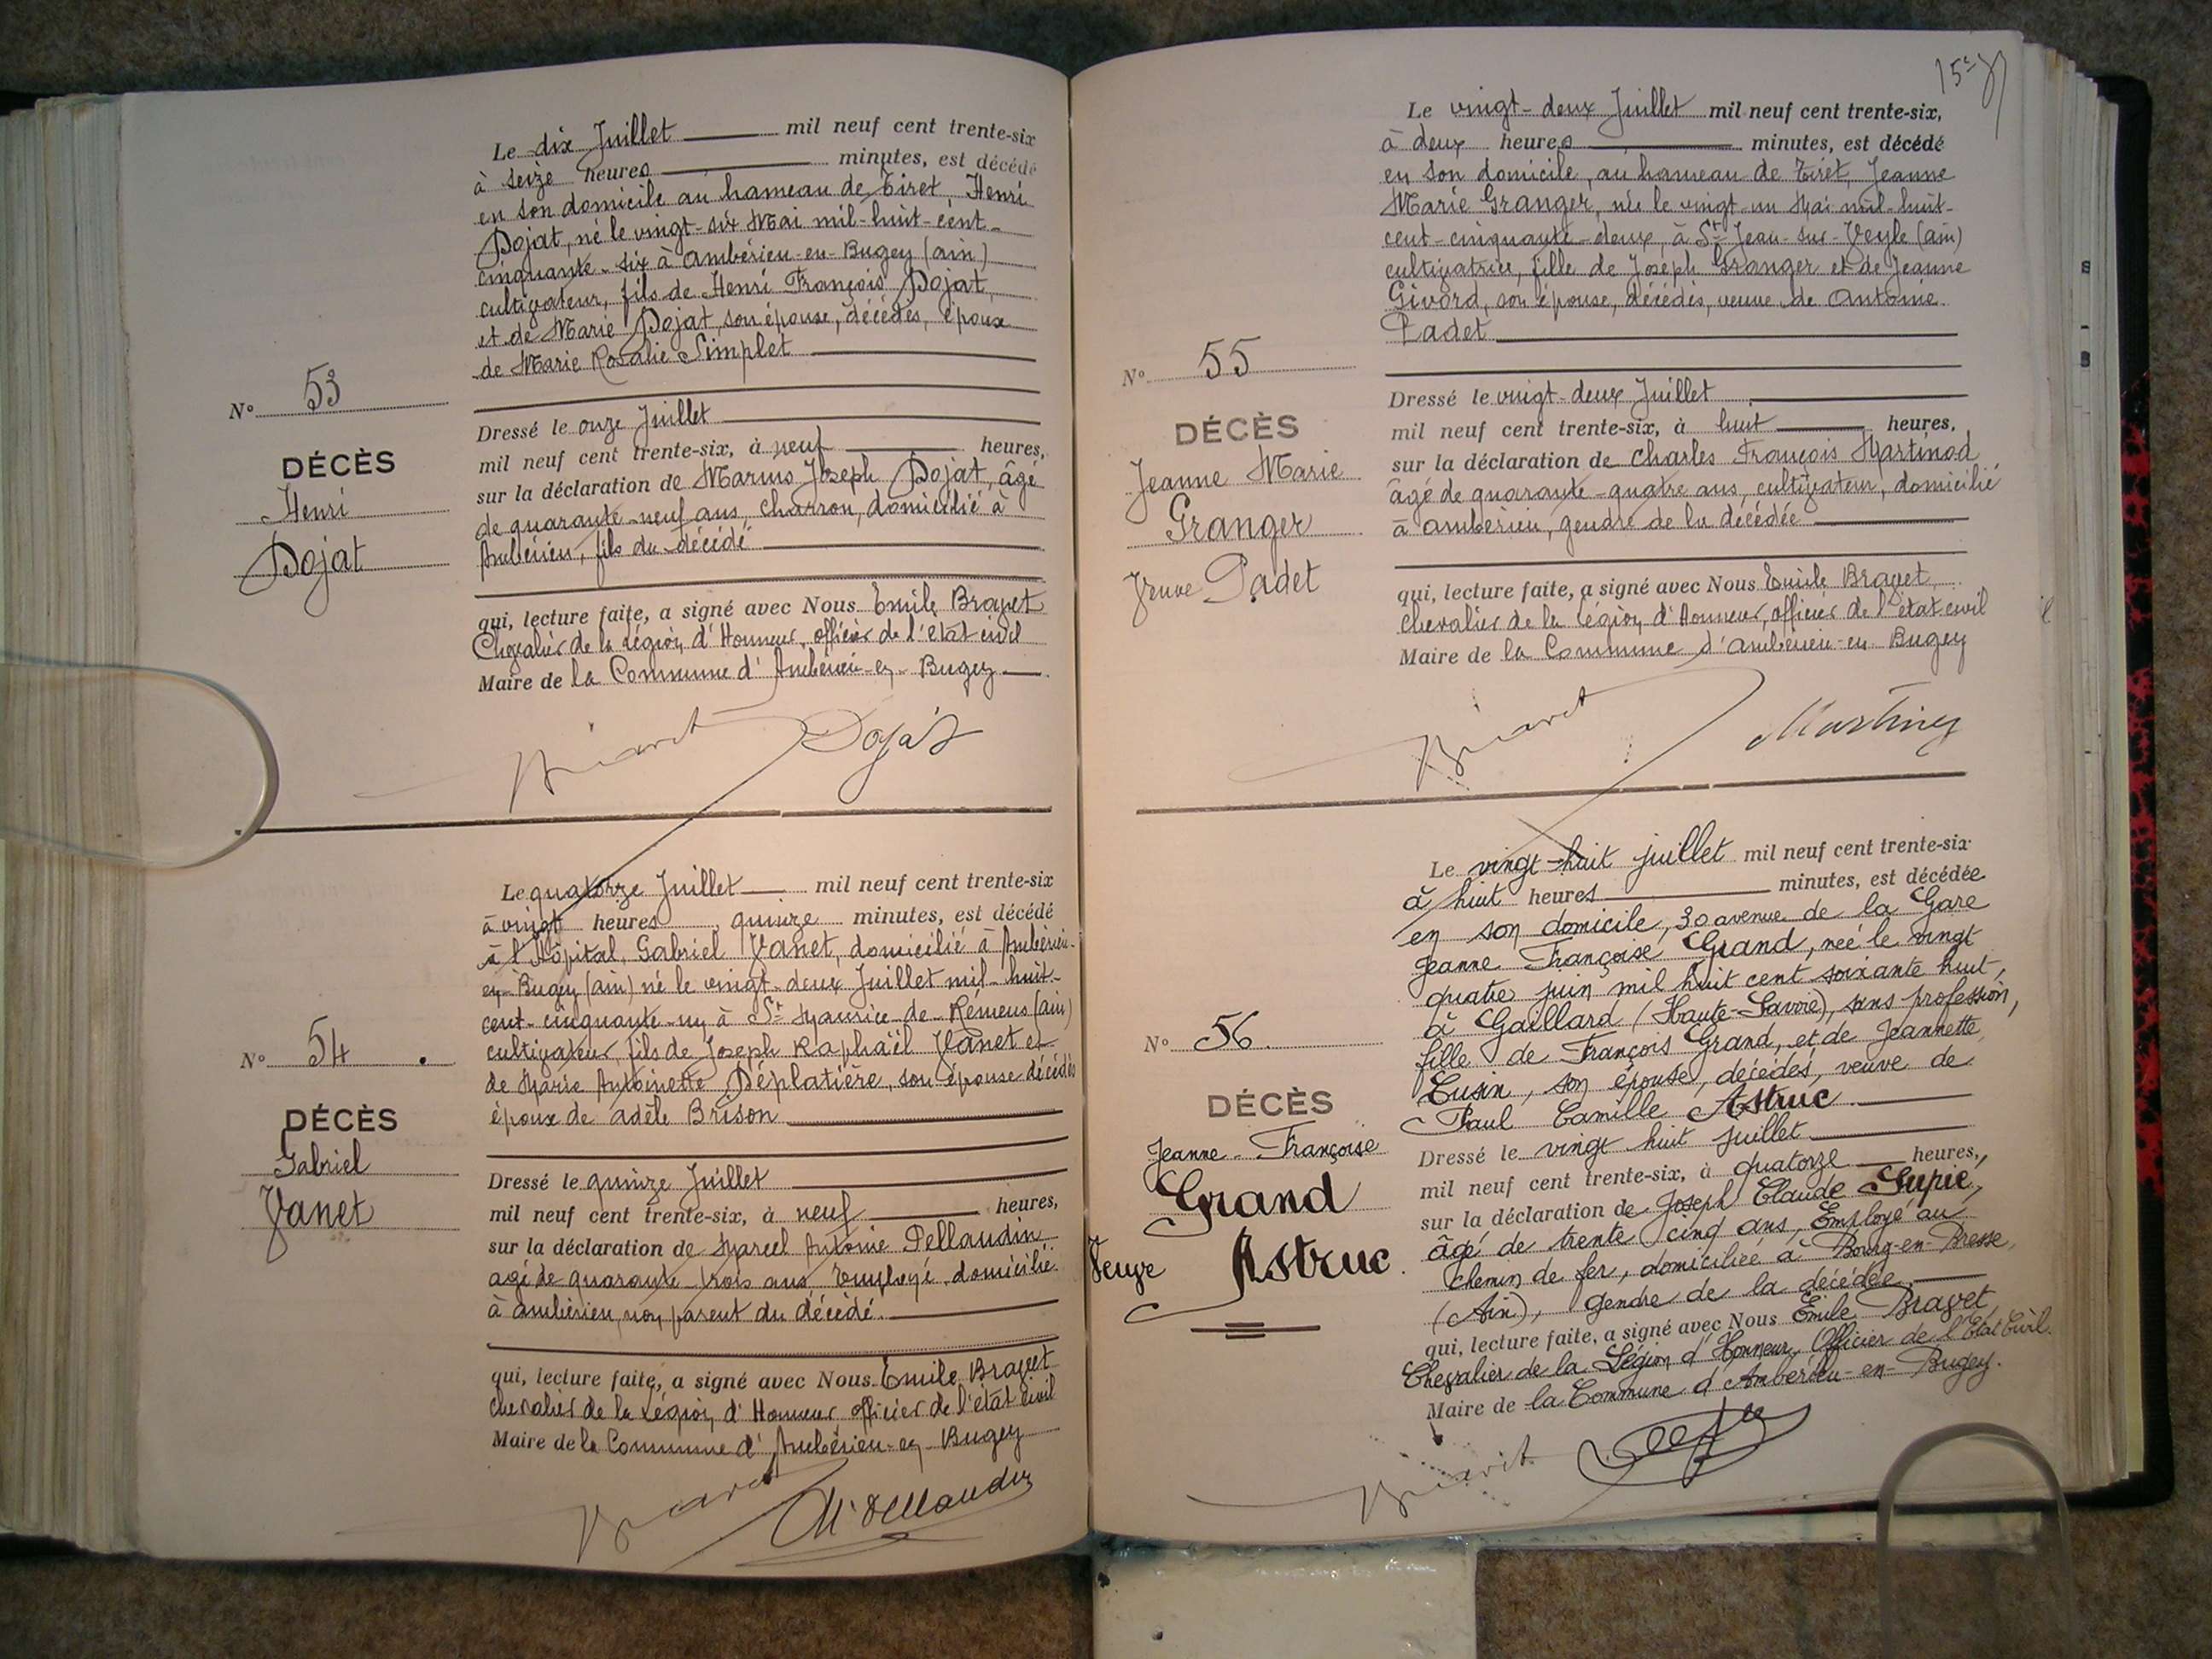 Le dix Juillet mil neuf cent trente-six
à seize heures minutes, est décédé
en son domicile au hameau de Tiret, Henri
Dojat, né le vingt-six Mai mil-huit-cent-
cinquante-six à Ambérieu-en-Bugey (ain)
cultivateur, fils de Henri François Dojat
et de Marie Dojat, son épouse, décédés, époux
de Marie Rosalie Simplet
Nº 53
DÉCÈS
Henri
Dojat
Dressé le onze Juillet
mil neuf cent trente-six, à neuf heures,
sur la déclaration de Marius Joseph Dojat, âgé
de quarante-neuf ans, charron, domicilié à
Ambérieu, fils du décédé
qui, lecture faite, a signé avec Nous Emile Bravet
Chevalier de la Légion d'Honneur, officier de l'état civil
Maire de la Commune d'Ambérieu-en-Bugey
Bravet Dojat
Le quatorze Juillet mil neuf cent trente-six
à vingt heures quinze minutes, est décédé
à l'Hôpital, Gabriel Vanet, domicilié à Ambérieu-
en-Bugey (ain) né le vingt-deux Juillet mil-huit-
cent-cinquante-un à St Maurice-de-Rémens (ain)
cultivateur, fils de Joseph Raphaël Vanet et
de Marie Antoinette Déplatière, son épouse décédés
époux de Adèle Brison
Nº 54
DÉCÈS
Gabriel
Vanet
Dressé le quinze Juillet
mil neuf cent trente-six, à neuf heures,
sur la déclaration de Marcel Antoine Pellaudin
agé de quarante-trois ans, Employé, domicilié
à ambérieu, non parent du décédé.
qui, lecture faite, a signé avec Nous Emile Bravet
chevalier de la Légion d'Honneur officier de l'état civil
Maire de la Commune d'Ambérieu-en-Bugey
Bravet M Pellaudin
Le vingt-deux Juillet mil neuf cent trente-six,
à deux heures minutes, est décédé
en son domicile, au hameau de Tiret, Jeanne
Marie Granger, née le vingt-un Mai mil-huit-
cent-cinquante-deux, à St Jean-sur-Veyle (ain)
cultivatrice, fille de Joseph Granger et de Jeanne
Givord, son épouse, décédés, veuve de Antoine
Padet
Nº 55
DÉCÈS
Jeanne Marie
Granger
Veuve Padet
Dressé le vingt-deux Juillet
mil neuf cent trente-six, à huit heures,
sur la déclaration de Charles François Martinod
âgé de quarante-quatre ans, cultivateur, domicilié
à ambérieu, gendre de la décédée
qui, lecture faite, a signé avec Nous Emile Bravet
chevalier de la Légion d'Honneur, officier de l'état civil
Maire de la Commune d'ambérieu-en-Bugey
Bravet
Le vingt-huit juillet mil neuf cent trente-six
à huit heures minutes, est décédée
en son domicile, 30 avenue de la Gare
Jeanne Françoise Grand, née le vingt
quatre juin mil huit cent soixante huit,
à Gaillard (Haute-Savoie), sans profession,
fille de François Grand, et de Jeannette
son épouse, décédés, veuve de
Paul Camille Astruc
Nº 56.
DÉCÈS
Jeanne-Françoise
Grand
Veuve Astruc.
Dressé le vingt huit juillet
mil neuf cent trente-six, à quatorze heures,
sur la déclaration de Joseph Claude
âgé de trente cinq ans, Employé au
chemin de fer, domiciliée à Bourg-en-Bresse,
(Ain), gendre de la décédée,
qui, lecture faite, a signé avec Nous Emile Bravet,
Chevalier de la Légion d'Honneur, Officier de l'État Civil.
Maire de la Commune d'Ambérieu-en-Bugey.
Bravet